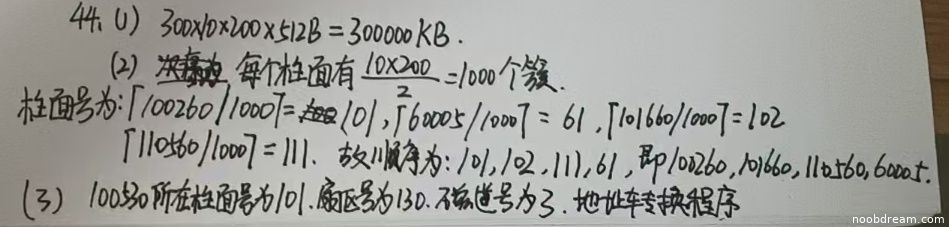 44、(1) 300×10×200×512B=300000KB.
(2) 每个柱面有 10×200/2 =1000个簇.
柱面号为:⌈100260/1000⌉=101,⌈60005/1000⌉=61,⌈101660/1000⌉=102
⌈110560/1000⌉=111. 故顺序为:101,102,111,61,即100260,101660,110560,60005.
(3) 100530所在柱面号为101.扇区号为130.磁道号为3.地址转换程序
www.noobdream.com